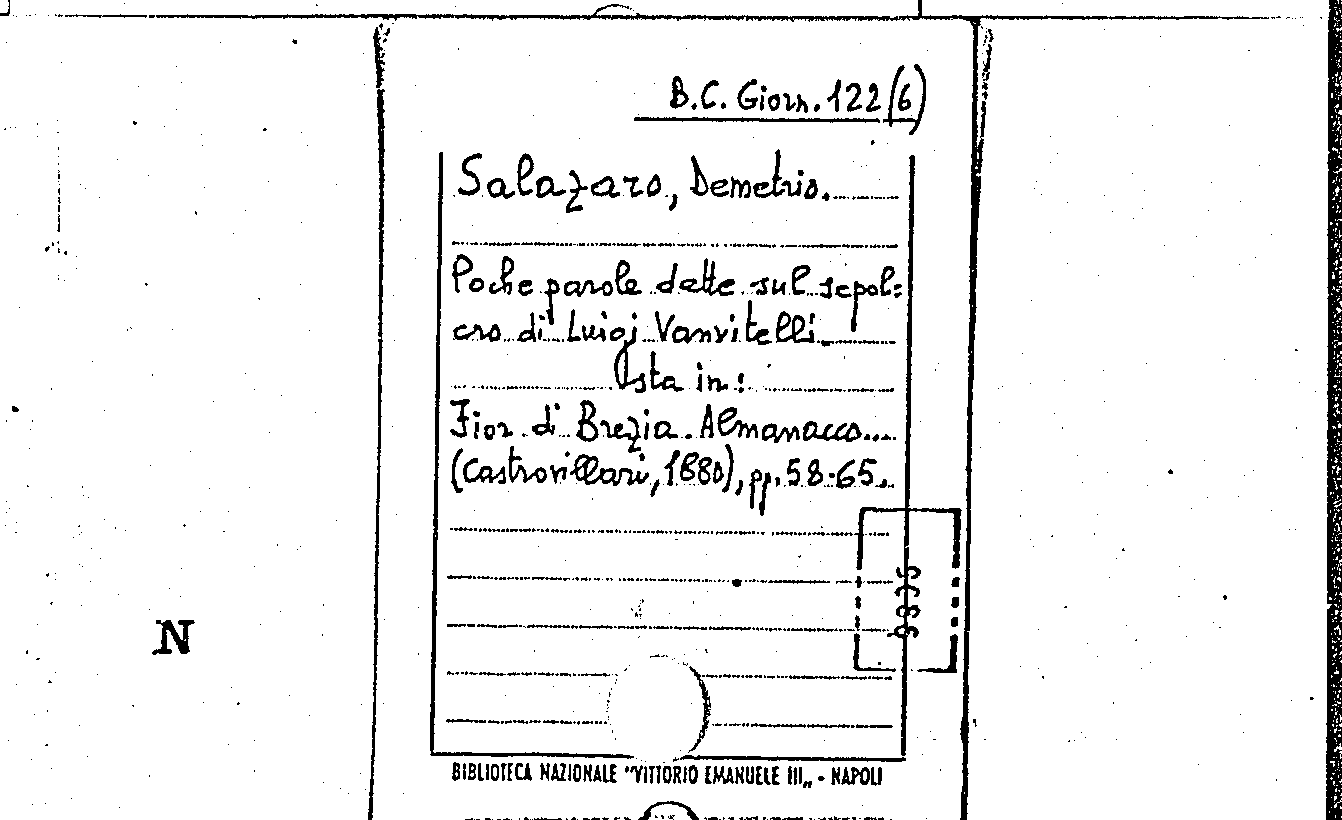 B.C. Giorn. 122(6)
Salazaro, Demetrio.
Poche parole dette sul sepol=
cro di Luigi Vanvitelli.
Sta in:
Fior di Brezia. Almanacco...
(Castrovillari, 1880), pp. 58-65.
N
BIBLIOTECA NAZIONALE "VITTORIO EMANUELE III„ - NAPOLI